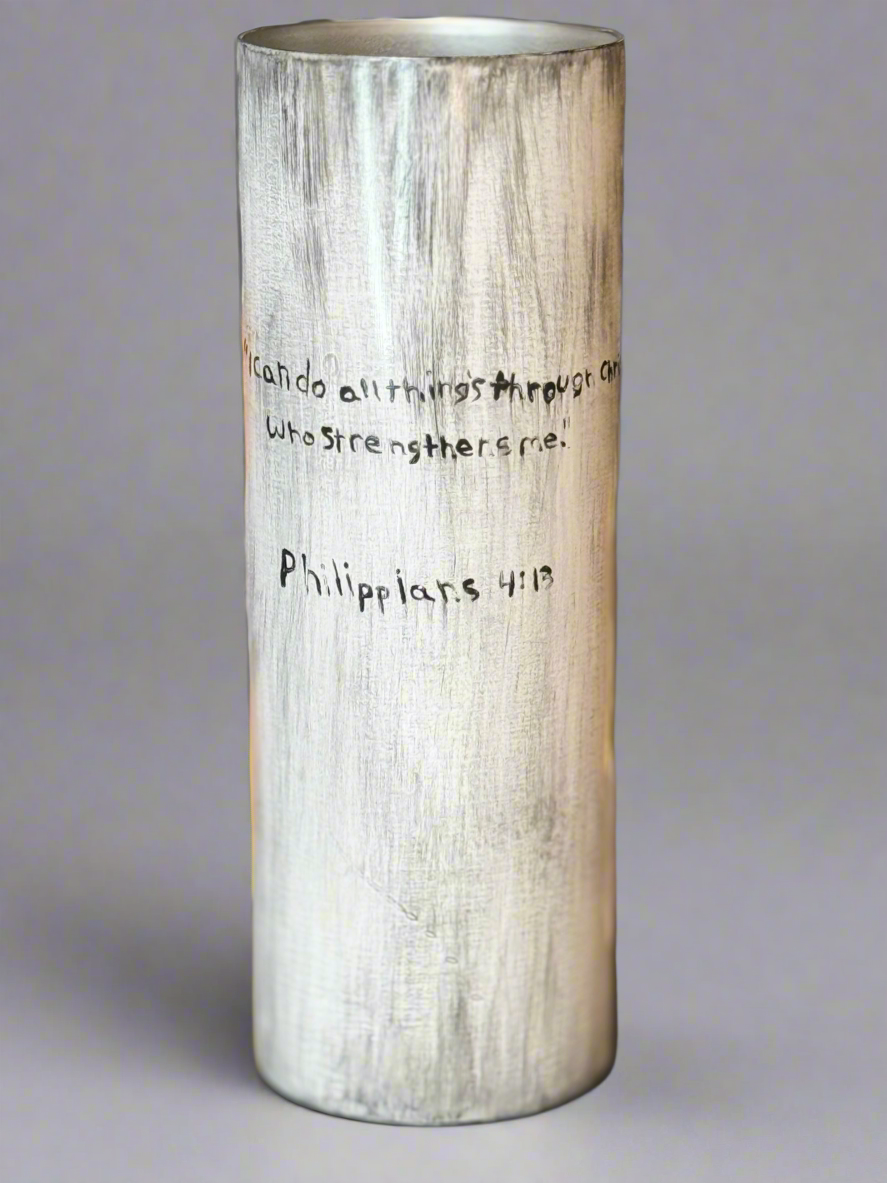 "I can do all things through Chri
who strengthens me."
Philippians 4:13